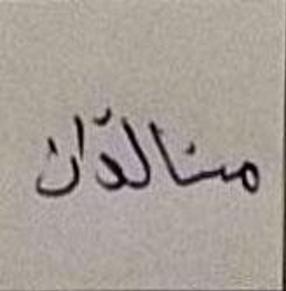 منالدّان